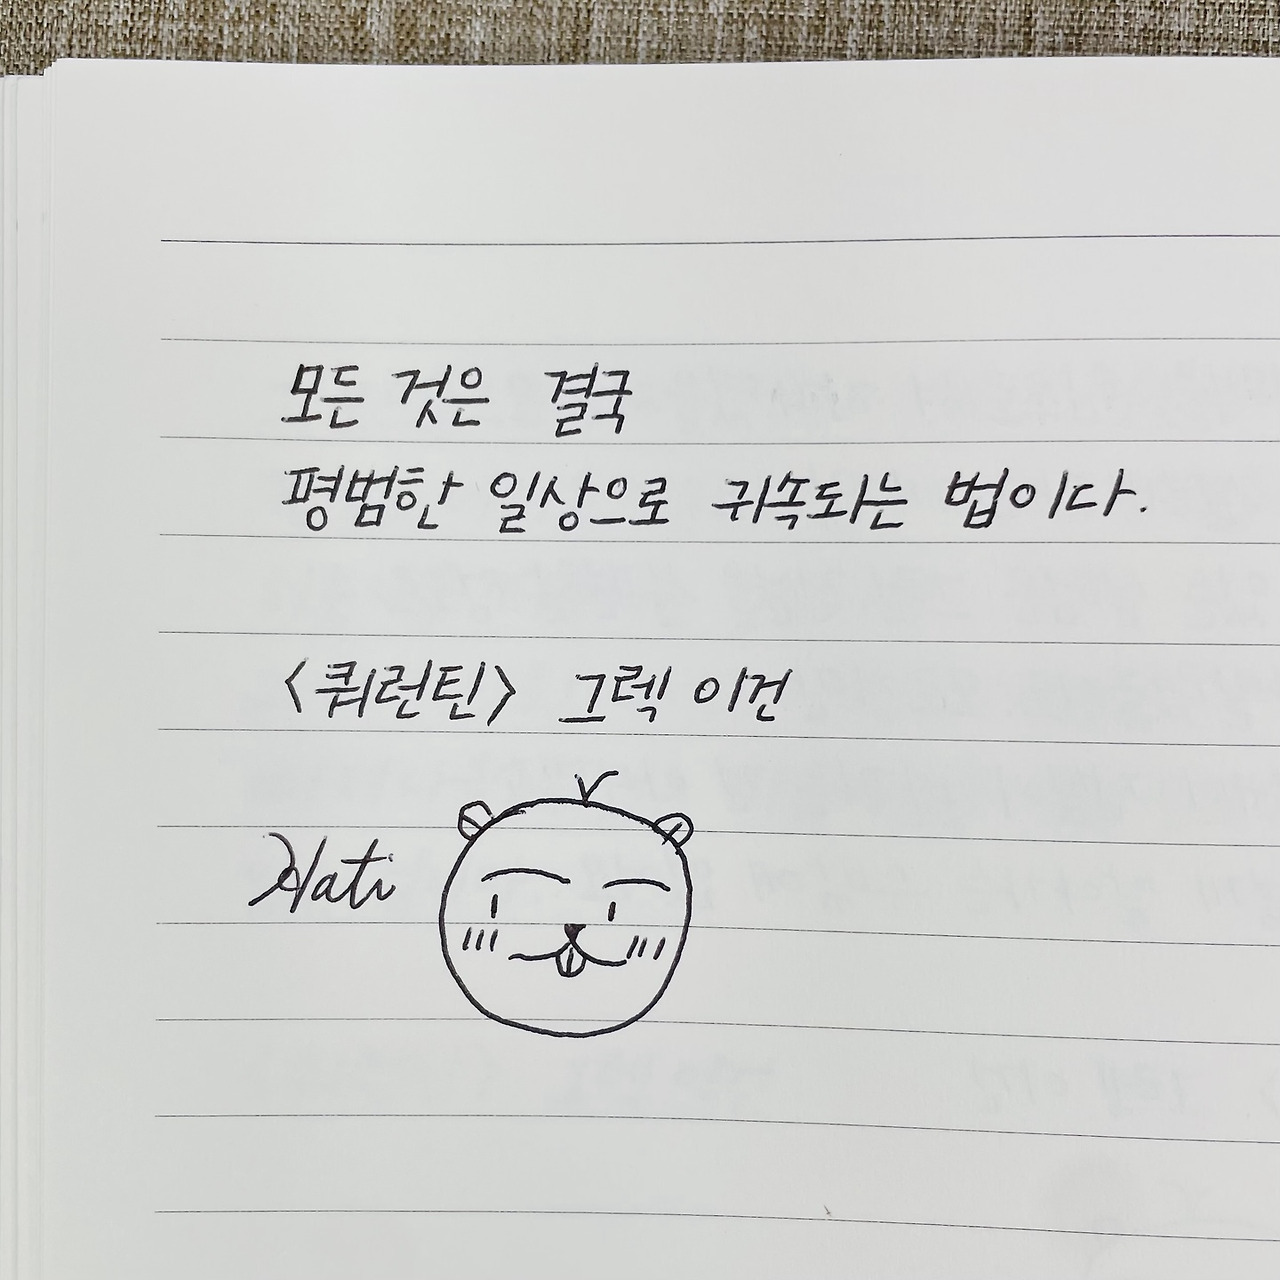 모든 것은 결국
평범한 일상으로 귀속되는 법이다.
<쿼런틴> 그렉 이건
Hati